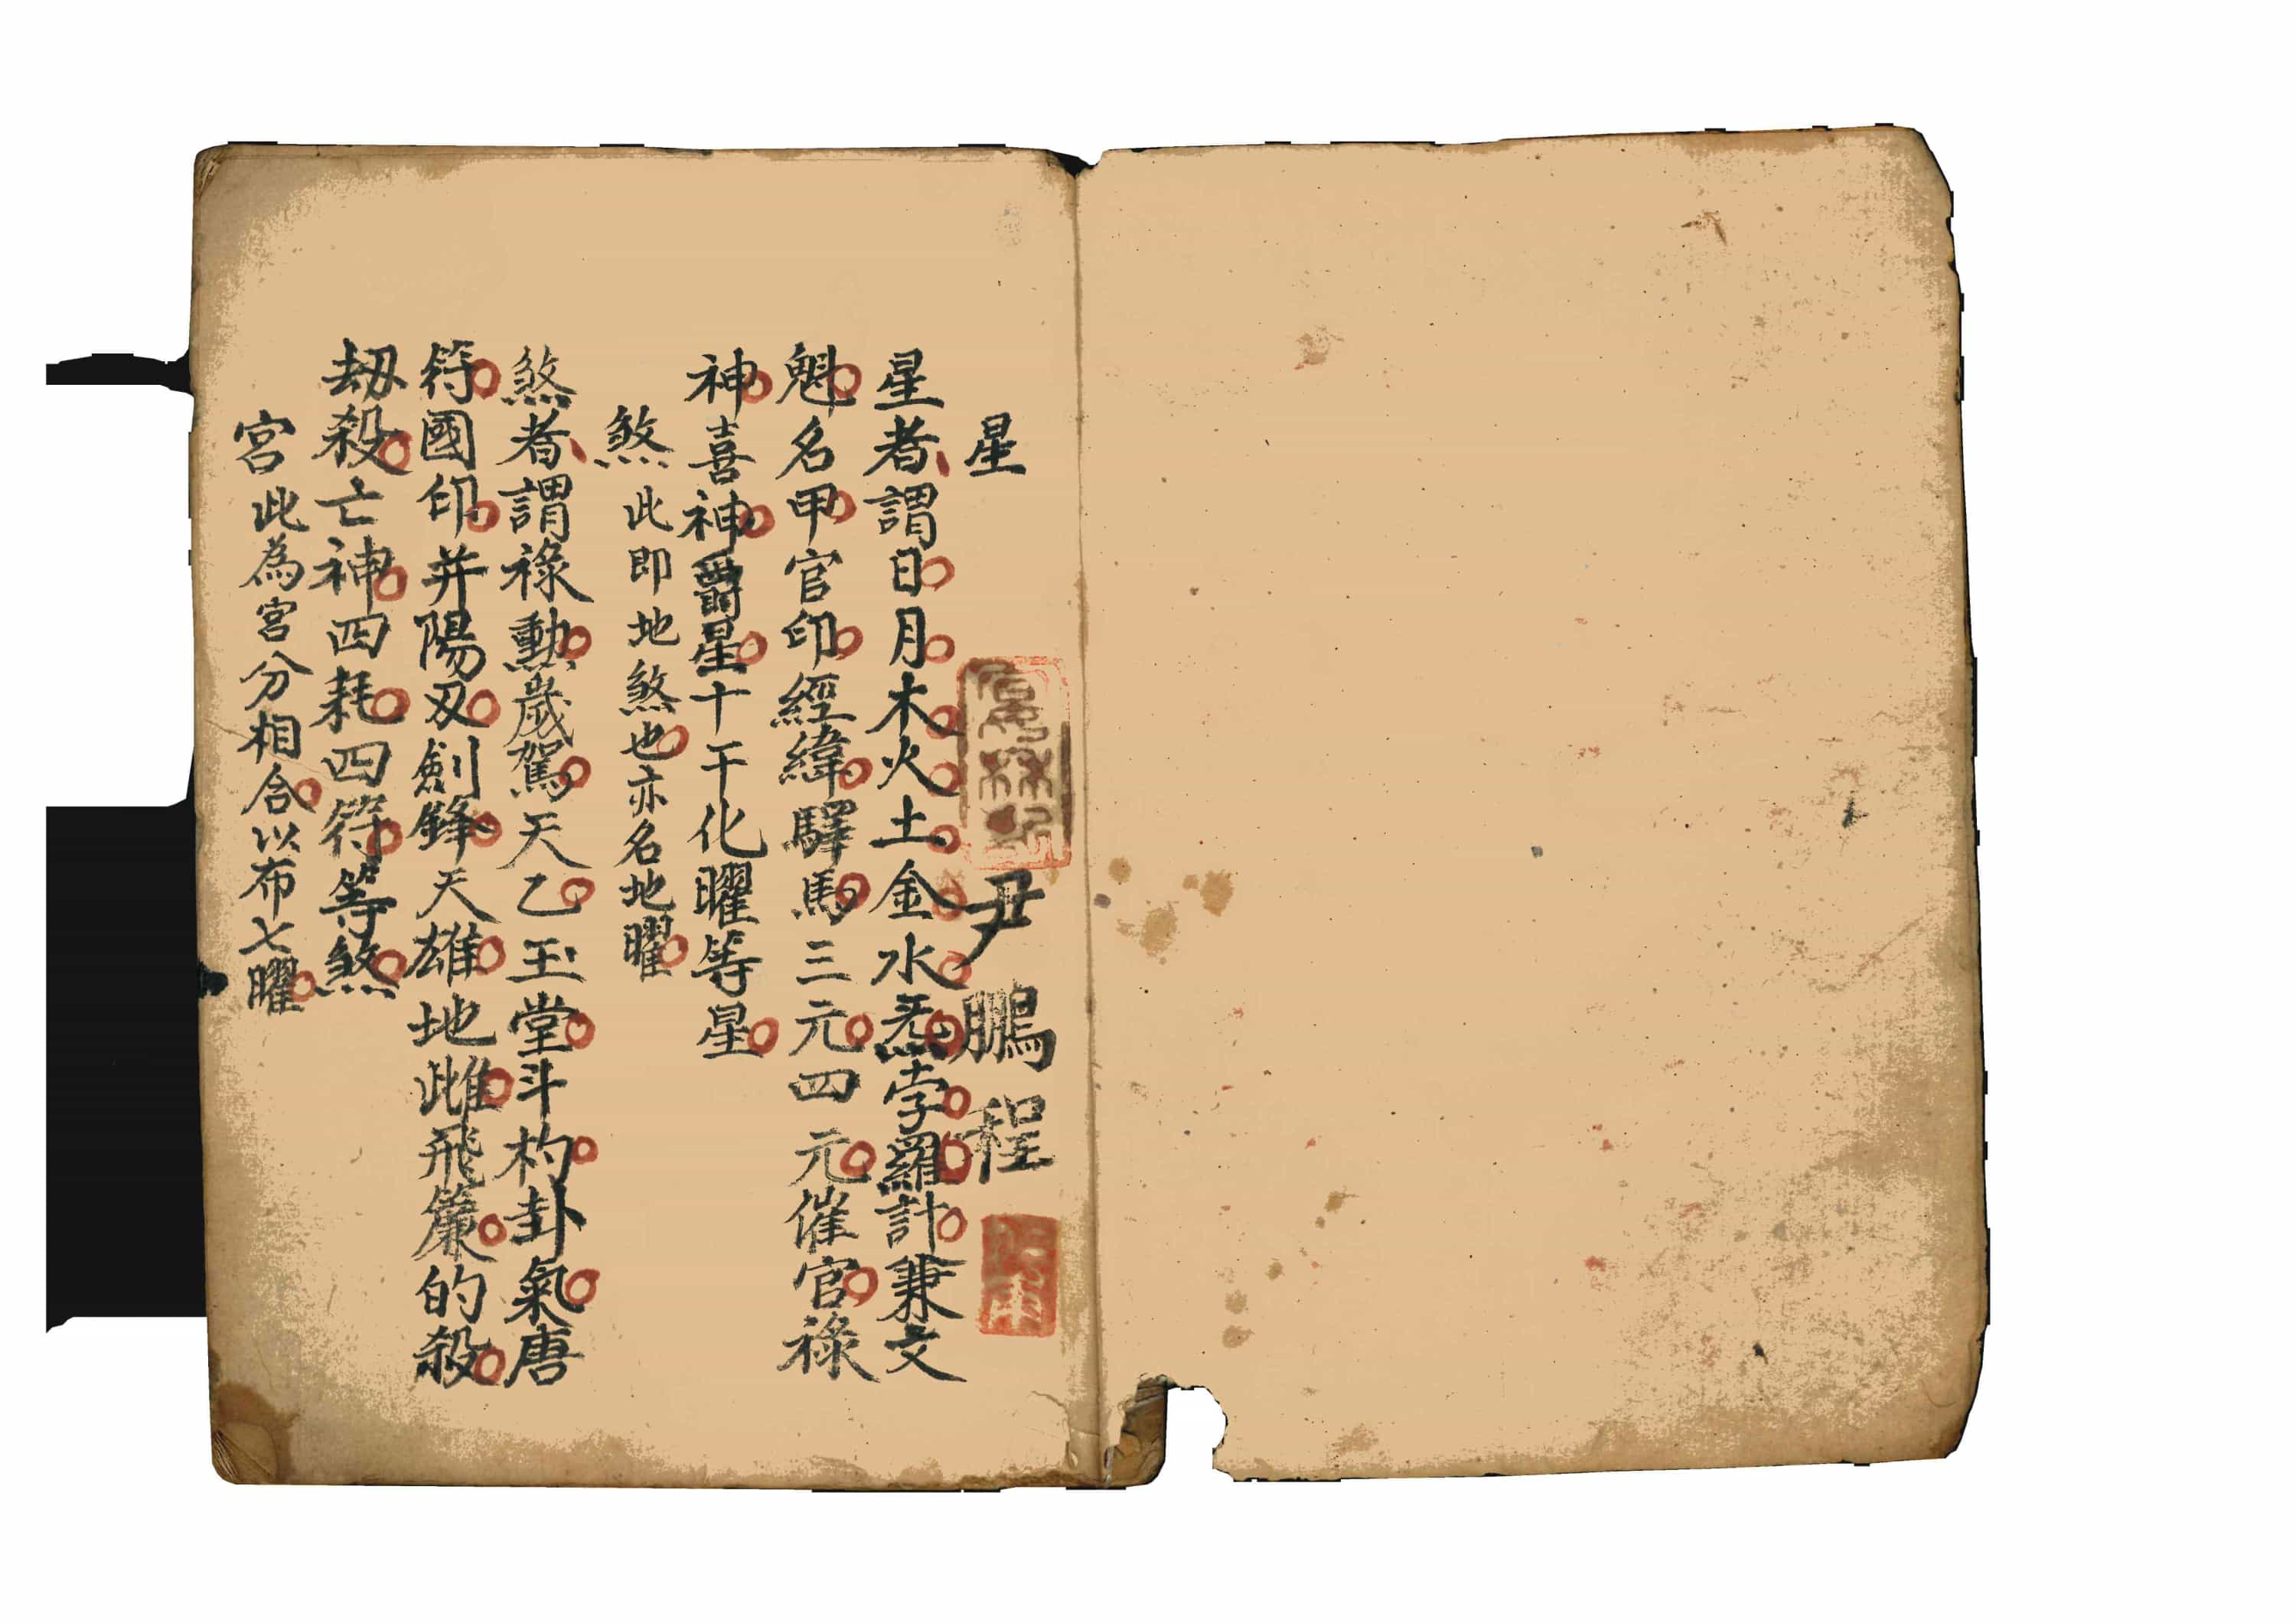 星
尹鵬程
星者謂日月木火土金水炁孛羅計兼文
魁名甲官印經緯驛馬三元四元催官祿
神喜神爵星十干化曜等星
煞此即地煞也亦名地曜
煞者謂祿勲歲駕天乙玉堂斗杓卦氣唐
符國印并陽刄劍鋒天雄地雌飛簾的殺
刧殺亡神四耗四符等煞
宮此為宮分相合以布七曜